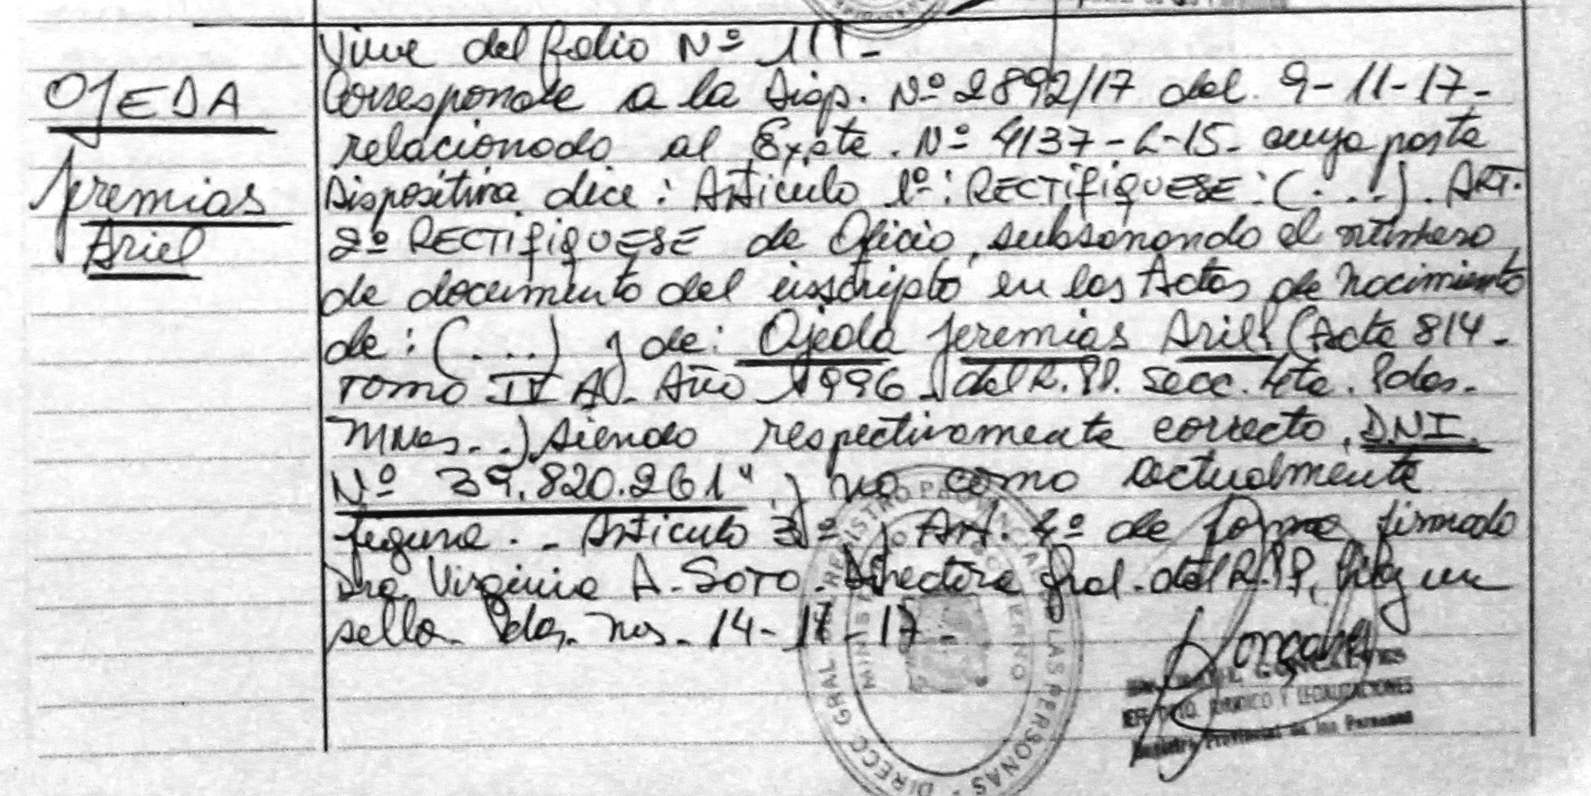 Viene del folio Nº 111-
OJEDA
Jeremias
Ariel
Corresponde a la Disp. Nº 2892/17 del 9-11-17-
relacionado al Expte. Nº 4137-L-15- cuya parte
Dispositiva dice: Artículo 1º: RECTIFIQUESE: (....). ART.
2º RECTIFIQUESE de Oficio, subsanando el número
de documento del inscripto en las Actas de Nacimiento
de: (....) y de: Ojeda Jeremias Ariel (Acta 814-
Tomo IV A- Año 1996 del R.PP. Secc. 4ta. Pdas.
Mnes..) siendo respectivamente correcto, DNI.
Nº 39.820.261" y no como actualmente
figura. - Artículo 3º y Art. 4º de forma, firmado
Dra. Virginia A. Soto. Directora Gral. del R.PP. Hay un
sello- Pdas. Mns- 14-11-17-
DIRECC. GRAL. REGISTRO PROVINCIAL DE LAS PERSONAS
GONCALVES
JEFE DPTO. JURIDICO Y LEGALIZACIONES
Registro Provincial de las Personas